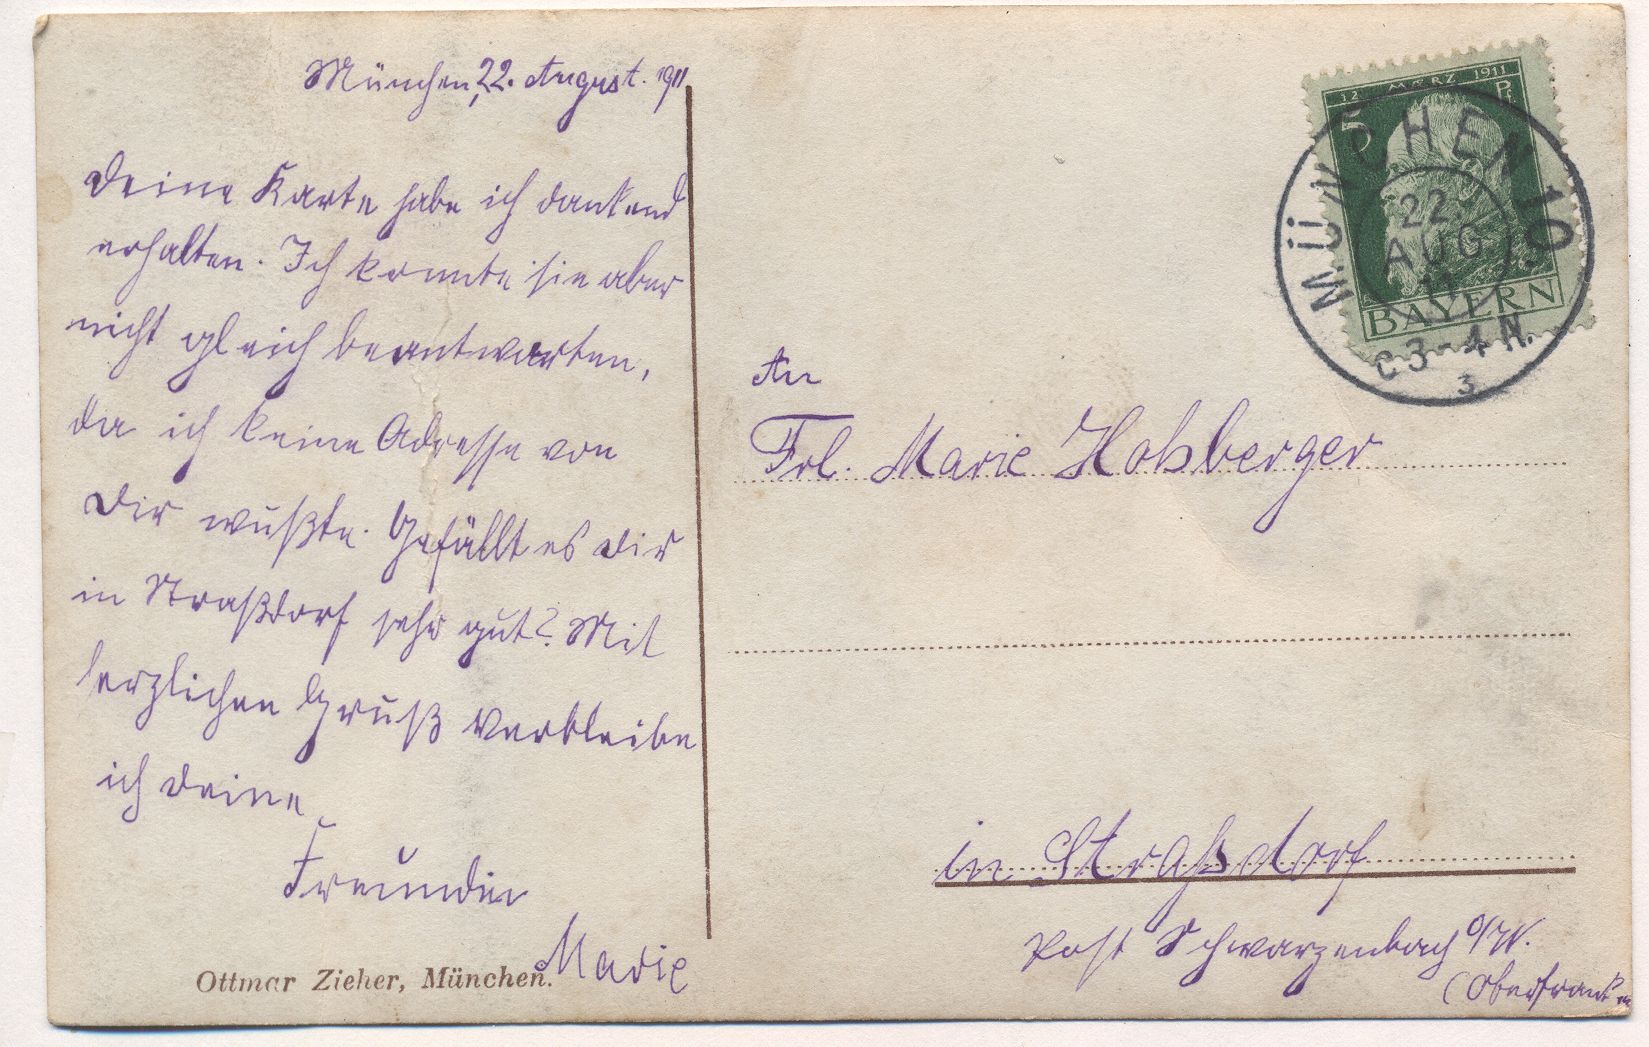 München, 22. August. 1911
Deine Karte habe ich dankend
erhalten. Ich konnte sie aber
nicht gleich beantworten,
da ich keine Adresse von
Dir wußte. Gefällt es Dir
in Straßdorf sehr gut? Mit
herzlichen Gruß verbleibe
ich Deine
Freundin
Marie
Ottmar Zieher, München.
12. MÆRZ 1911
5 Pf.
BAYERN
MÜNCHEN 10
22
AUG
11
C 3-4 N.
3
An
Frl. Marie Holzberger
in Straßdorf
Post Schwarzenbach o/W.
(Oberfranken